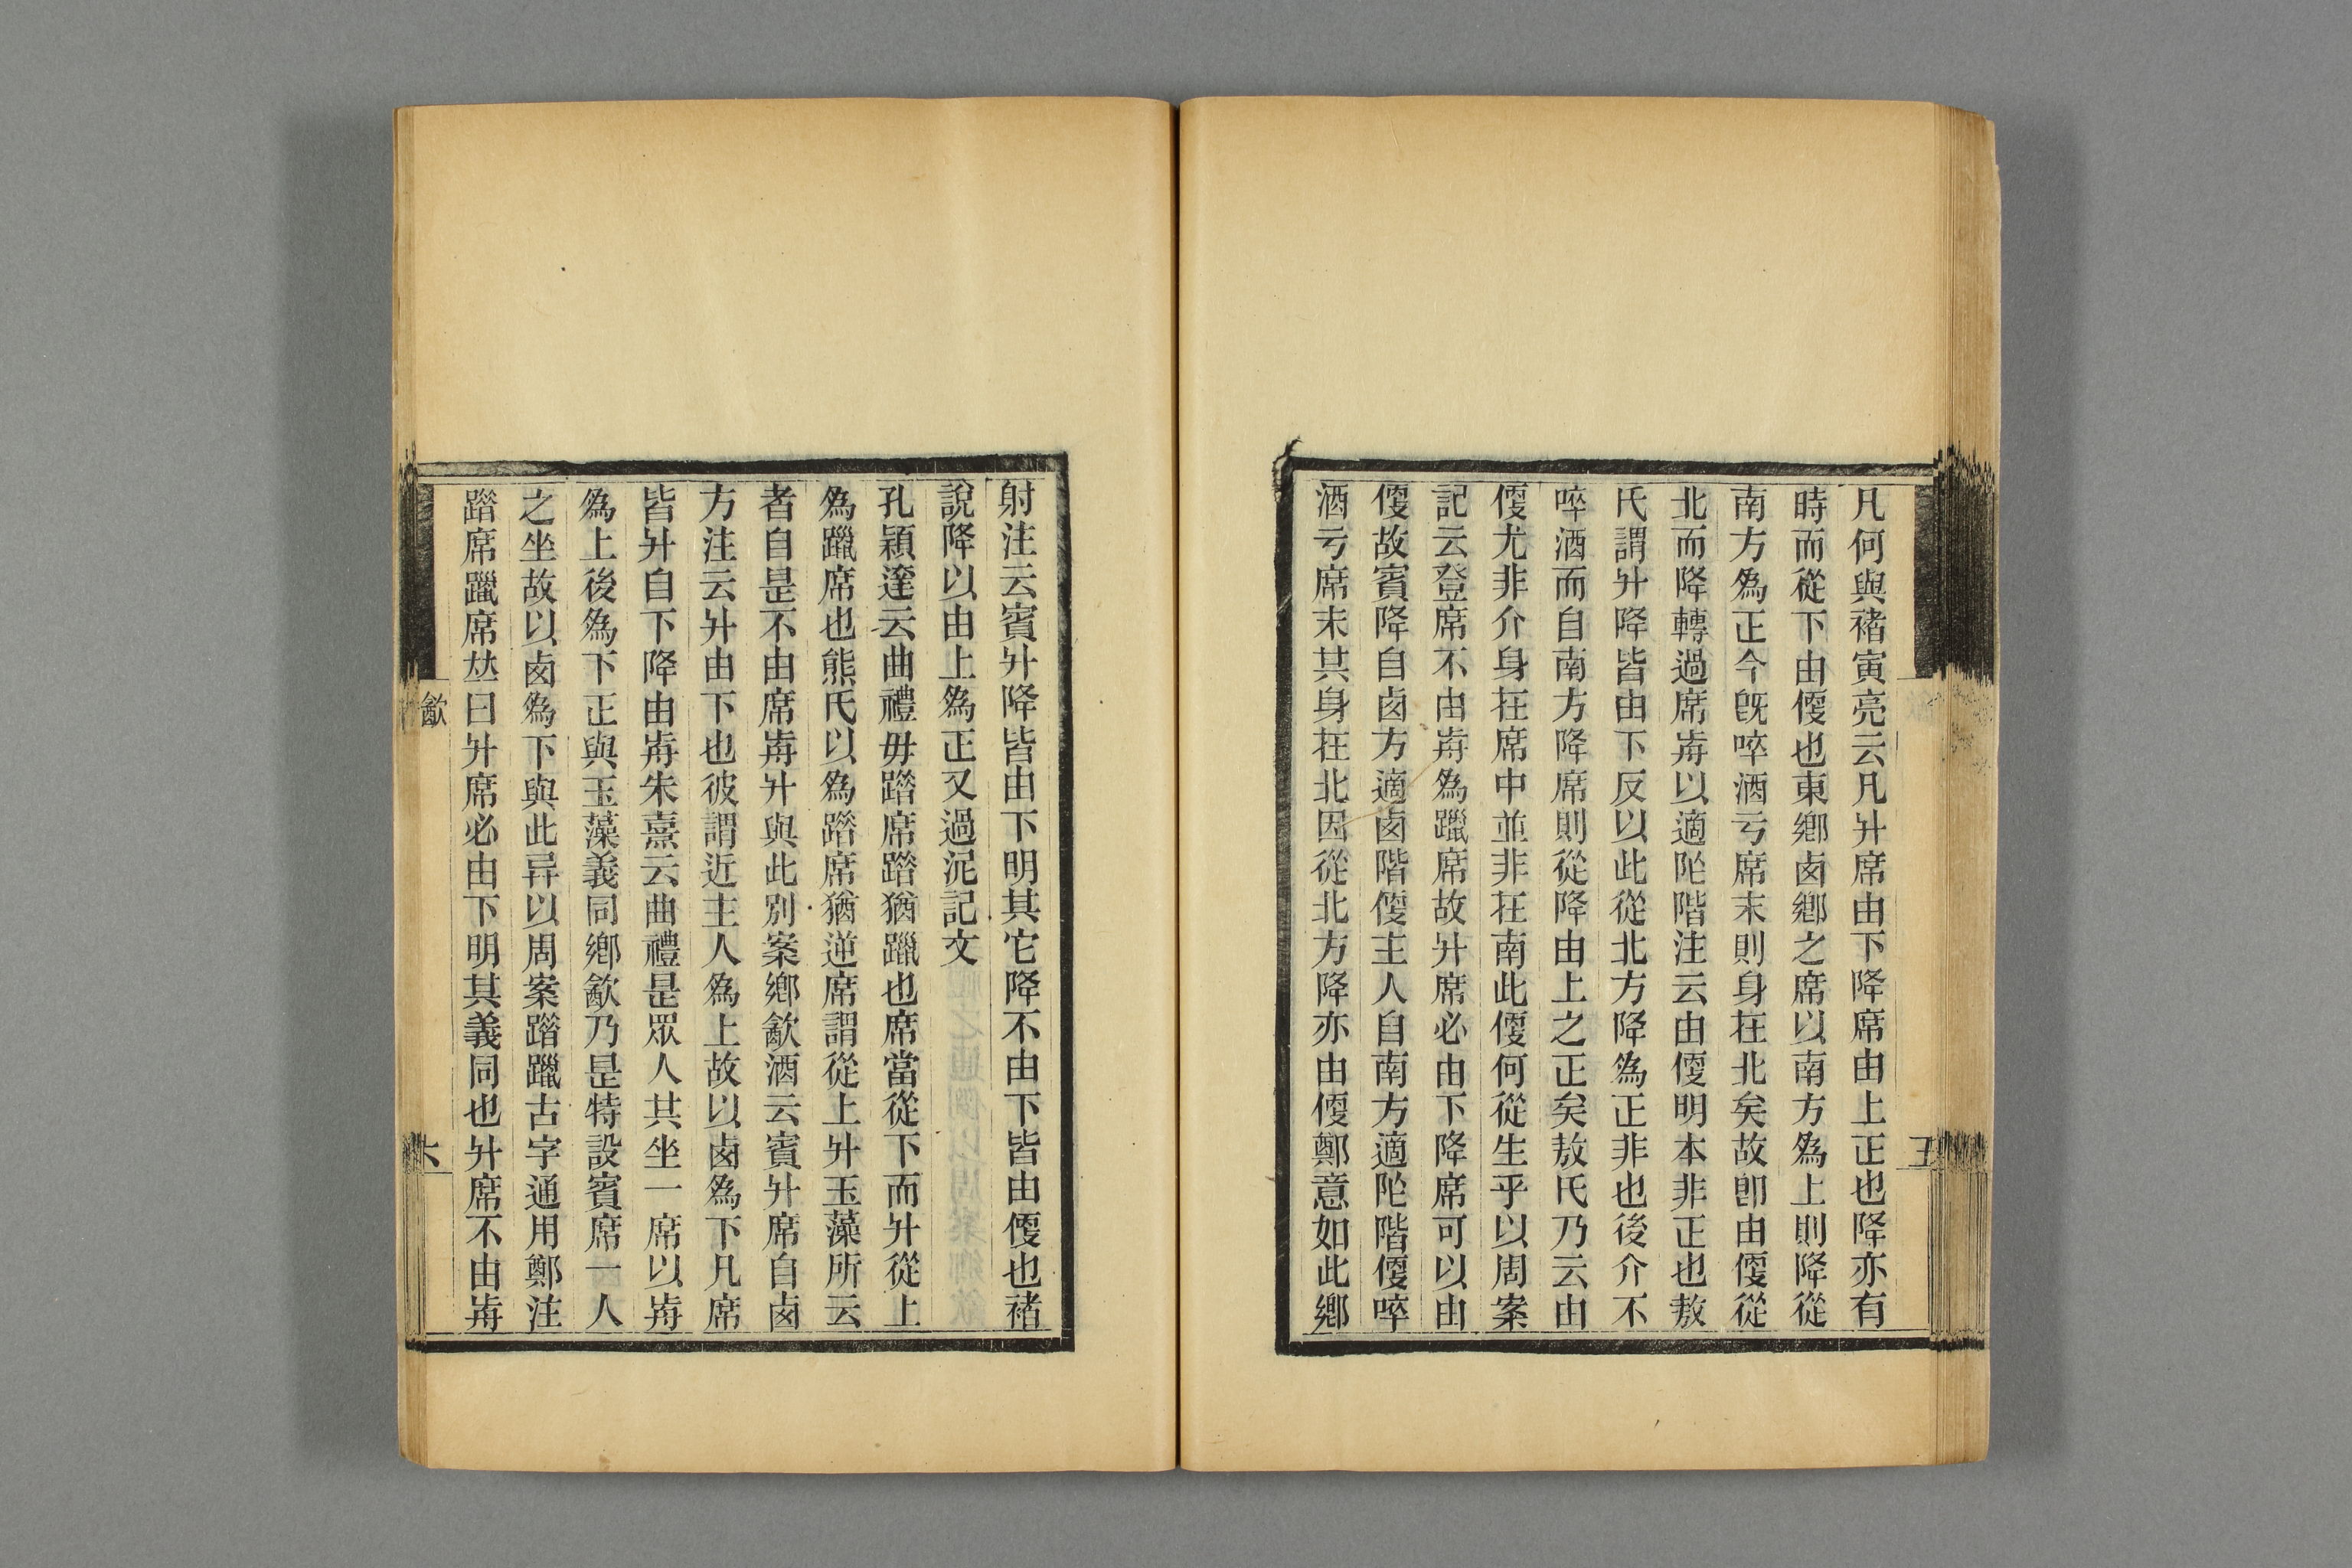 凡何與褚寅亮云凡升席由下降席由上正也降亦有
時而從下由㑮也東鄉卤鄉之席以南方爲上則降從
南方爲正今旣啐酒亏席末則身在北矣故卽由㑮從
北而降轉過席歬以適阼階注云由㑮明本非正也敖
氏謂升降皆由下反以此從北方降爲正非也後介不
啐酒而自南方降席則從降由上之正矣敖氏乃云由
㑮尤非介身在席中並非在南此㑮何從生乎以周案
記云登席不由歬爲躐席故升席必由下降席可以由
㑮故賓降自卤方適卤階㑮主人自南方適阼階㑮啐
酒亏席末其身在北因從北方降亦由㑮鄭意如此鄉
五
射注云賓升降皆由下明其它降不由下皆由㑮也褚
說降以由上爲正又過泥記文
孔穎達云曲禮毋踖席踖猶躐也席當從下而升從上
爲躐席也熊氏以爲踖席猶逆席謂從上升玉藻所云
者自是不由席歬升與此別案鄉歙酒云賓升席自卤
方注云升由下也彼謂近主人爲上故以卤爲下凡席
皆升自下降由歬朱熹云曲禮是眾人其坐一席以歬
爲上後爲下正與玉藻義同鄉歙乃是特設賓席一人
之坐故以卤爲下與此异以周案踖躐古字通用鄭注
踖席躐席竝曰升席必由下明其義同也升席不由歬
歙
六